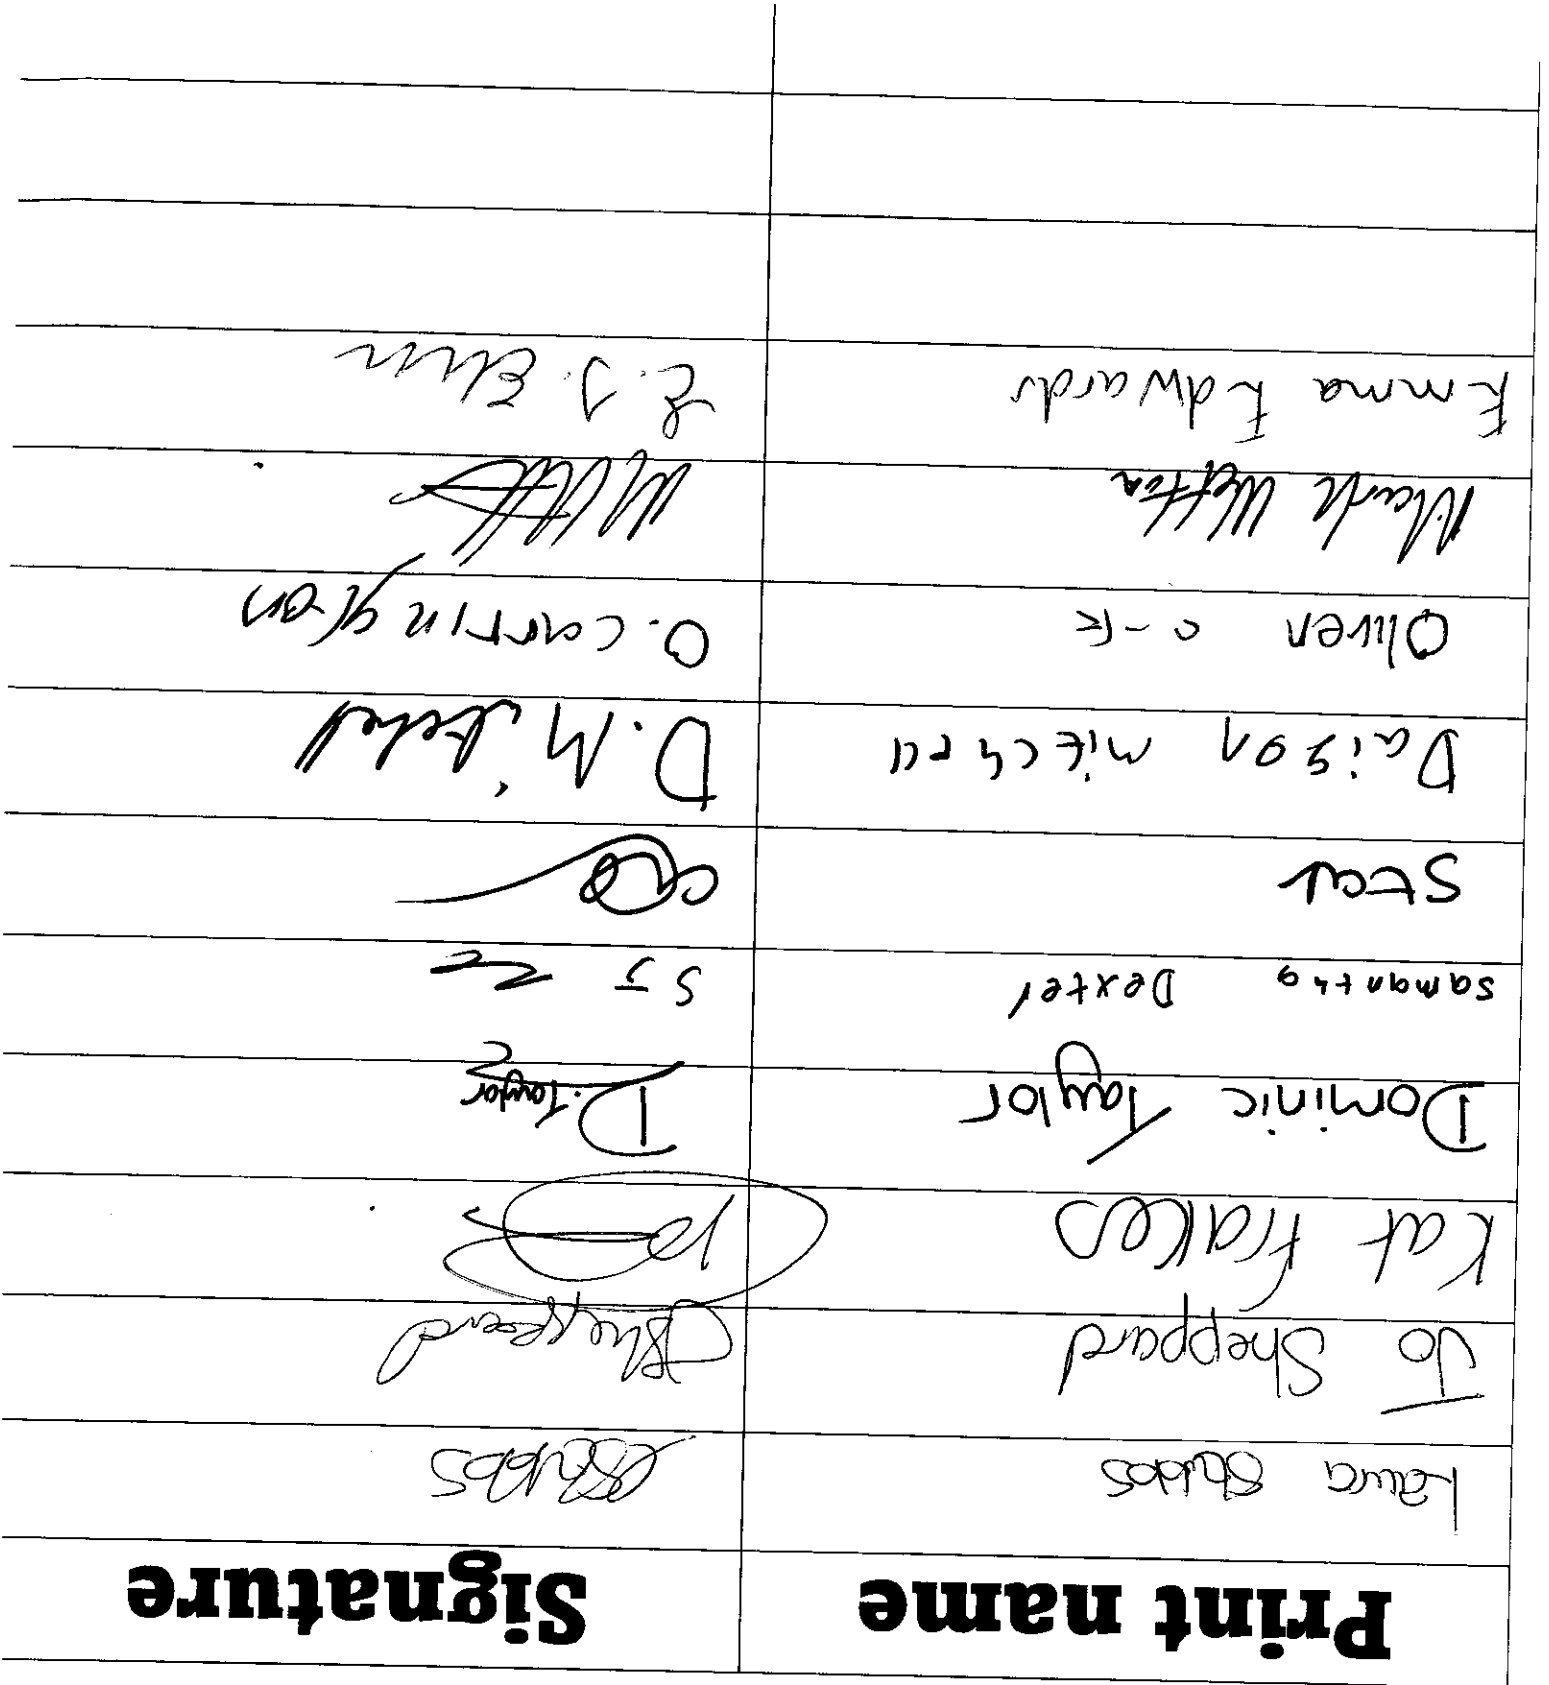 Print name Signature
Laura Stubbs LStubbs
Jo Sheppard JSheppard
Kat Frakes
Dominic Taylor D.Taylor
Samantha Dexter S J
Star
Daison mitchell D. Mitchell
Oliver c-k O. carrington
Mark
Emma Edwards E. J.